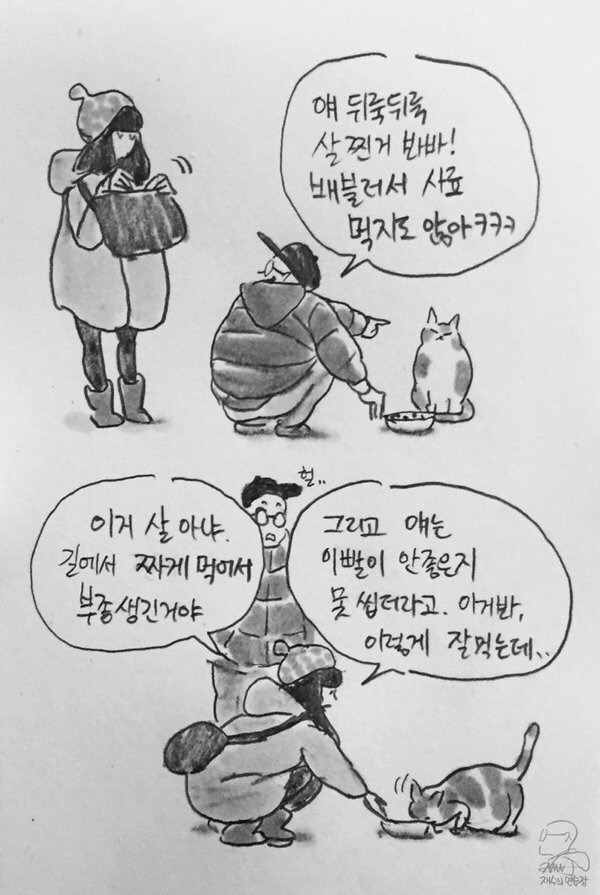 얘 뒤룩뒤룩
살찐거 봐바!
배불러서 사료
먹지도 않아ㅋㅋㅋ
헐..
이거 살 아냐.
길에서 짜게 먹어서
부종생긴거야.
그리고 얘는
이빨이 안좋은지
못 씹더라고. 이거봐,
이렇게 잘먹는데..
재수의 연습장